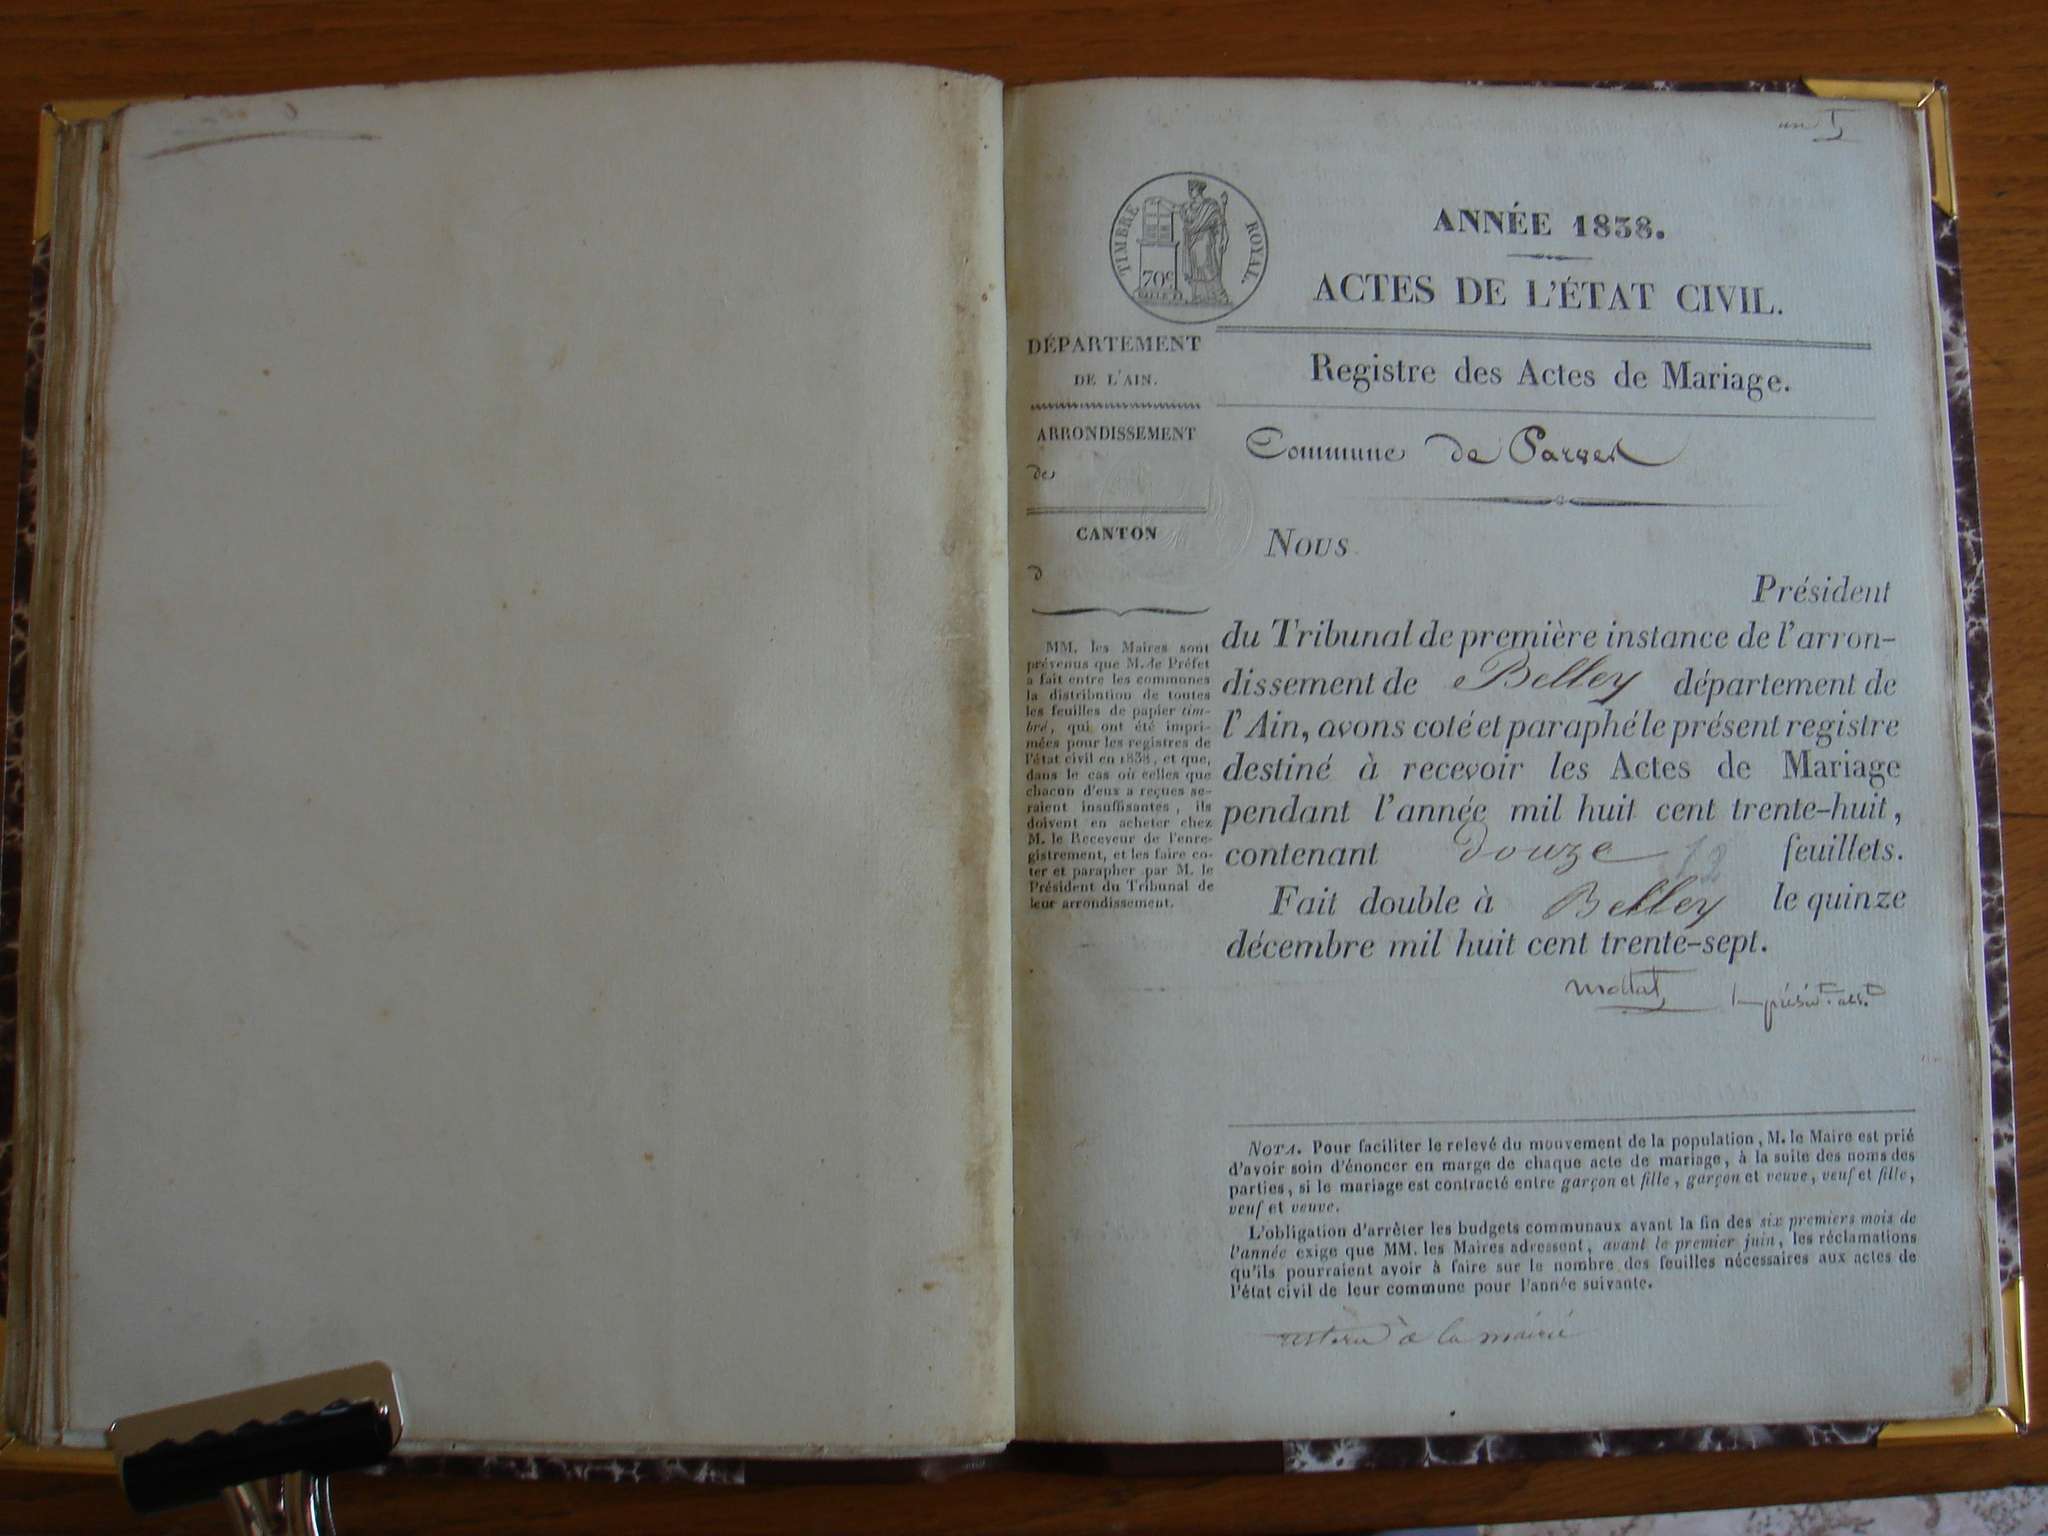 un
TIMBRE ROYAL.
70c
ANNÉE 1838.
ACTES DE L'ÉTAT CIVIL.
DÉPARTEMENT
DE L'AIN.
ARRONDISSEMENT
de
CANTON
d
MM. les Maires sont
prévenus que M. le Préfet
a fait entre les communes
la distribution de toutes
les feuilles de papier tim-
bré, qui ont été impri-
mées pour les registres de
l'état civil en 1838, et que,
dans le cas où celles que
chacun d'eux a reçues se-
raient insuffisantes, ils
doivent en acheter chez
M. le Receveur de l'enre-
gistrement, et les faire co-
ter et parapher par M. le
Président du Tribunal de
leur arrondissement.
Registre des Actes de Mariage.
Commune de Parves
Nous
Président
du Tribunal de première instance de l'arron-
dissement de Belley département de
l'Ain, avons coté et paraphé le présent registre
destiné à recevoir les Actes de Mariage
pendant l'année mil huit cent trente-huit,
contenant douze 12 feuillets.
Fait double à Belley le quinze
décembre mil huit cent trente-sept.
NOTA. Pour faciliter le relevé du mouvement de la population, M. le Maire est prié
d'avoir soin d'énoncer en marge de chaque acte de mariage, à la suite des noms des
parties, si le mariage est contracté entre garçon et fille, garçon et veuve, veuf et fille,
veuf et veuve.
L'obligation d'arrêter les budgets communaux avant la fin des six premiers mois de
l'année exige que MM. les Maires adressent, avant le premier juin, les réclamations
qu'ils pourraient avoir à faire sur le nombre des feuilles nécessaires aux actes de
l'état civil de leur commune pour l'année suivante.
à la mairie